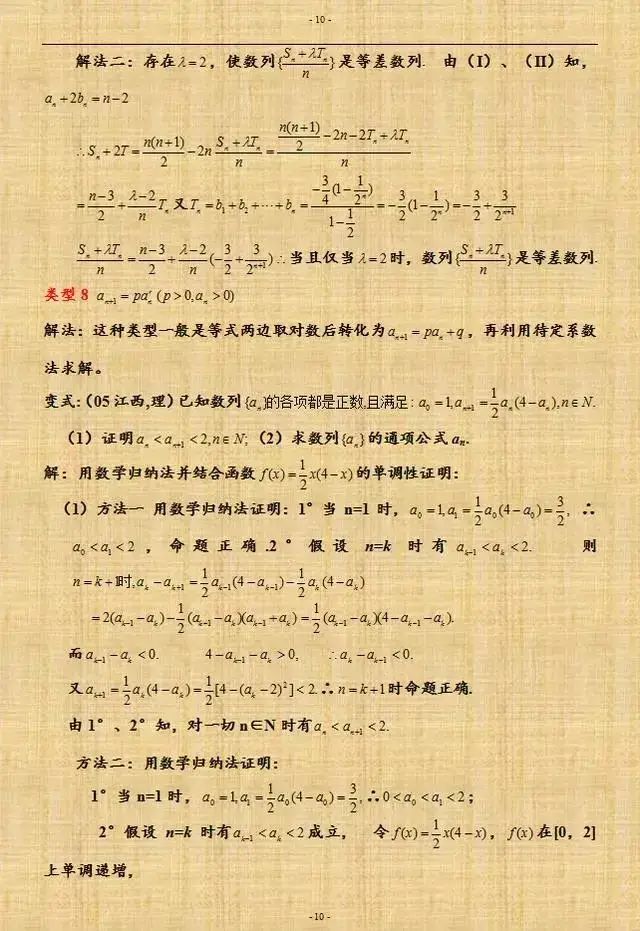 - 10 -
解法二：存在 λ=2，使数列{(S_n+λT_n)/n}是等差数列. 由（I）、（II）知，
a_n+2b_n=n-2
∴S_n+2T=n(n+1)/2-2n (S_n+λT_n)/n=(n(n+1)/2-2n-2T_n+λT_n)/n
=(n-3)/2+(λ-2)/n T_n 又 T_n=b_1+b_2+⋯+b_n=(-3/4(1-1/2^n))/(1-1/2)=-3/2(1-1/2^n)=-3/2+3/2^{n+1}
(S_n+λT_n)/n=(n-3)/2+(λ-2)/n(-3/2+3/2^{n+1})∴当且仅当 λ=2 时，数列{(S_n+λT_n)/n}是等差数列.
类型8 a_{n+1}=pa_n^r (p>0,a_n>0)
解法：这种类型一般是等式两边取对数后转化为 a_{n+1}=pa_n+q，再利用待定系数
法求解。
变式:（05江西,理）已知数列{a_n}的各项都是正数,且满足: a_0=1,a_{n+1}=1/2 a_n(4-a_n),n∈N.
（1）证明 a_n<a_{n+1}<2,n∈N;（2）求数列{a_n}的通项公式 a_n.
解：用数学归纳法并结合函数 f(x)=1/2 x(4-x) 的单调性证明：
（1）方法一 用数学归纳法证明：1°当 n=1 时，a_0=1,a_1=1/2 a_0(4-a_0)=3/2, ∴
a_0<a_1<2，命题正确.2°假设 n=k 时有 a_{k-1}<a_k<2. 则
n=k+1时,a_k-a_{k+1}=1/2 a_{k-1}(4-a_{k-1})-1/2 a_k(4-a_k)
=2(a_{k-1}-a_k)-1/2(a_{k-1}-a_k)(a_{k-1}+a_k)=1/2(a_{k-1}-a_k)(4-a_{k-1}-a_k).
而 a_{k-1}-a_k<0. 4-a_{k-1}-a_k>0, ∴a_k-a_{k-1}<0.
又 a_{k+1}=1/2 a_k(4-a_k)=1/2[4-(a_k-2)^2]<2.∴n=k+1 时命题正确.
由1°、2°知，对一切 n∈N 时有 a_n<a_{n+1}<2.
方法二：用数学归纳法证明：
1°当 n=1 时，a_0=1,a_1=1/2 a_0(4-a_0)=3/2,∴0<a_0<a_1<2；
2°假设 n=k 时有 a_{k-1}<a_k<2 成立， 令 f(x)=1/2 x(4-x)，f(x) 在[0，2]
上单调递增，
- 10 -